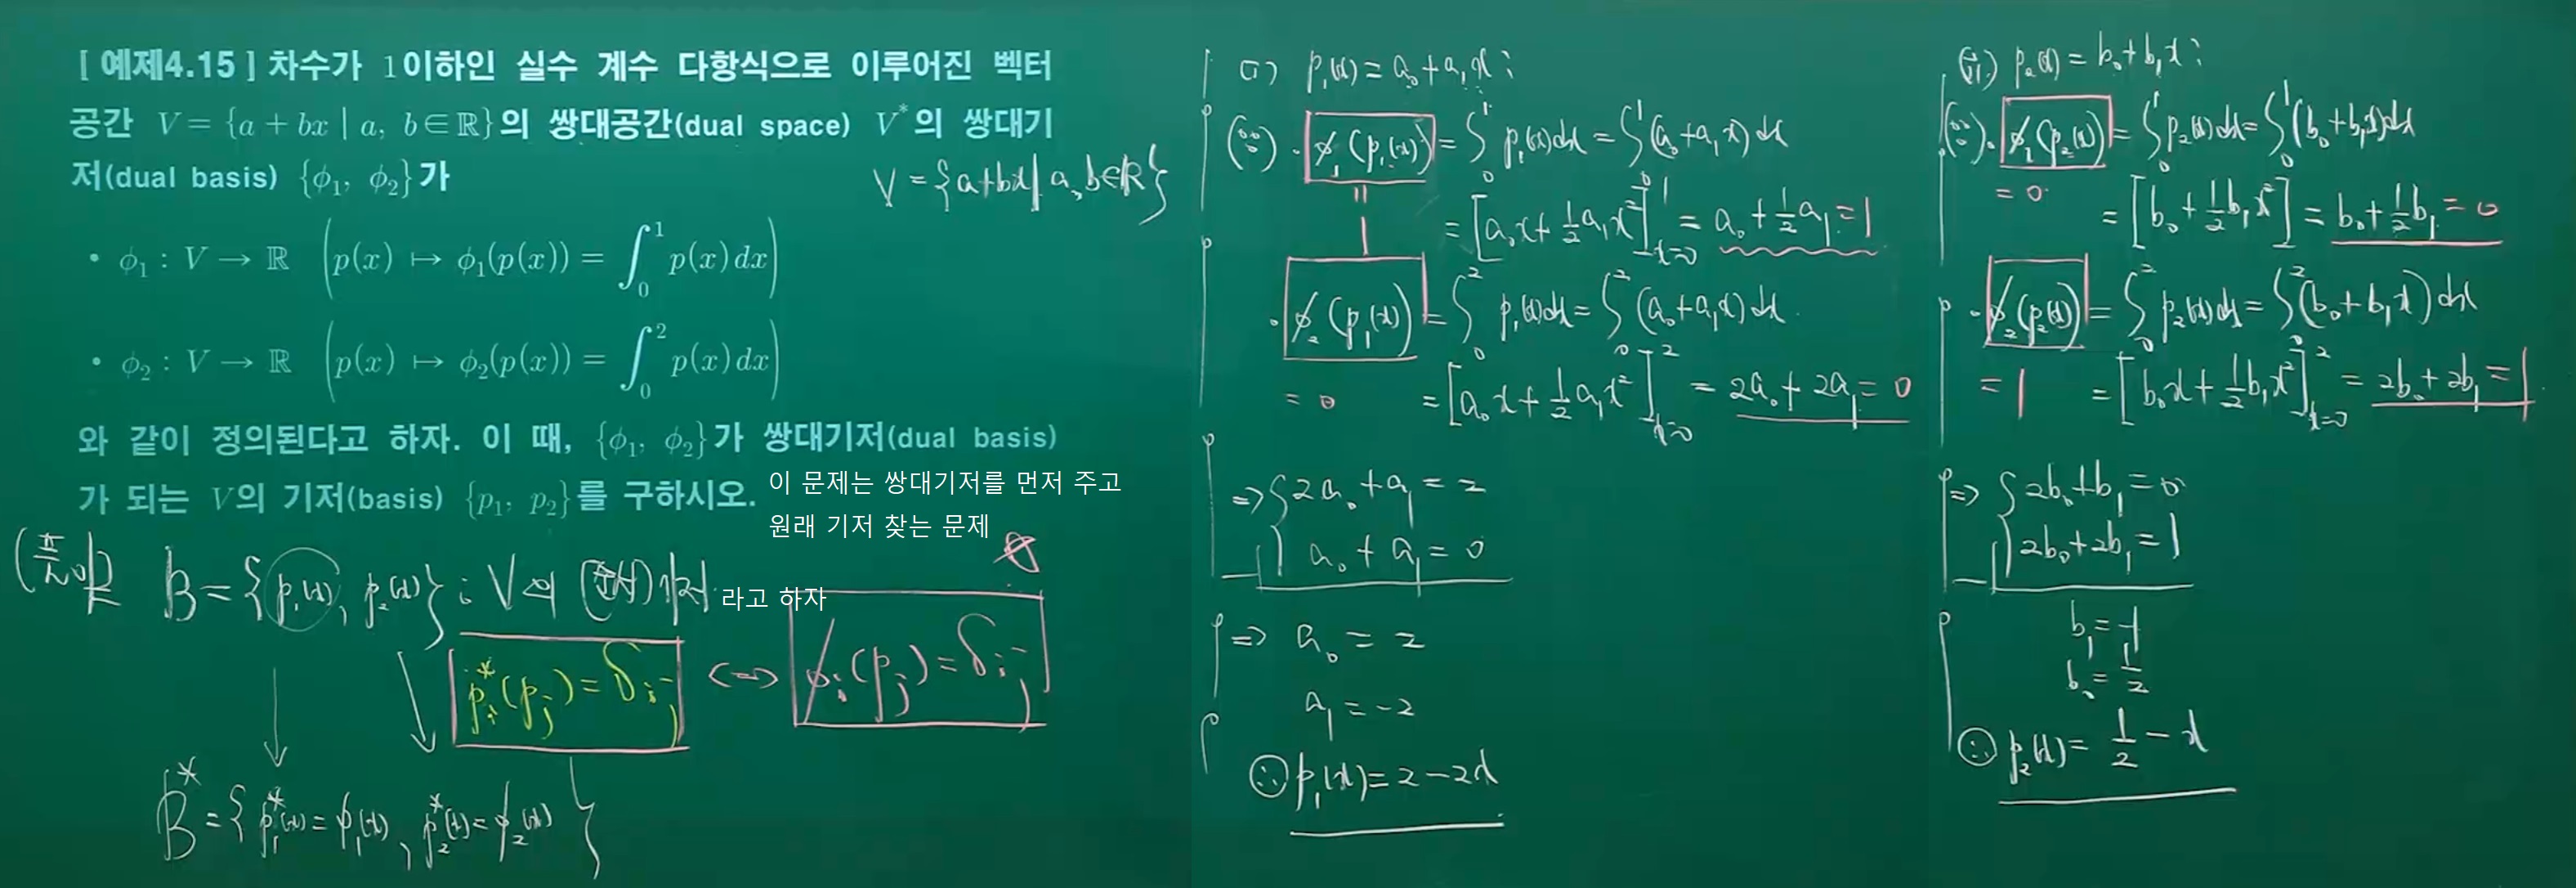 [ 예제4.15 ] 차수가 1이하인 실수 계수 다항식으로 이루어진 벡터
공간 V = {a + bx | a, b ∈ ℝ}의 쌍대공간(dual space) V*의 쌍대기
저(dual basis) {ϕ₁, ϕ₂}가
V = {a+bx | a, b∈ℝ}
• ϕ₁ : V → ℝ (p(x) ↦ ϕ₁(p(x)) = ∫₀¹ p(x) dx)
• ϕ₂ : V → ℝ (p(x) ↦ ϕ₂(p(x)) = ∫₀² p(x) dx)
와 같이 정의된다고 하자. 이 때, {ϕ₁, ϕ₂}가 쌍대기저(dual basis)
가 되는 V의 기저(basis) {p₁, p₂}를 구하시오.
이 문제는 쌍대기저를 먼저 주고
원래 기저 찾는 문제
(풀이)
B = {p₁(x), p₂(x)} : V의 (순서)기저
라고 하자
pᵢ*(pⱼ) = δᵢⱼ ⟺ ϕᵢ(pⱼ) = δᵢⱼ
B* = {p₁*(x) = ϕ₁(x), p₂*(x) = ϕ₂(x)}
(i) p₁(x) = a₀ + a₁x ;
(∵) · ϕ₁(p₁(x)) = ∫₀¹ p₁(x)dx = ∫₀¹ (a₀ + a₁x) dx
= 1
= [a₀x + ½a₁x²]¹ₓ₌₀ = a₀ + ½a₁ = 1
· ϕ₂(p₁(x)) = ∫₀² p₁(x)dx = ∫₀² (a₀ + a₁x) dx
= 0
= [a₀x + ½a₁x²]²ₓ₌₀ = 2a₀ + 2a₁ = 0
⇒ { 2a₀ + a₁ = 2
a₀ + a₁ = 0
⇒ a₀ = 2
a₁ = -2
∴ p₁(x) = 2 - 2x
(ii) p₂(x) = b₀ + b₁x ;
(∵) · ϕ₁(p₂(x)) = ∫₀¹ p₂(x)dx = ∫₀¹ (b₀ + b₁x)dx
= 0
= [b₀ + ½b₁x²] = b₀ + ½b₁ = 0
· ϕ₂(p₂(x)) = ∫₀² p₂(x)dx = ∫₀² (b₀ + b₁x) dx
= 1
= [b₀x + ½b₁x²]²ₓ₌₀ = 2b₀ + 2b₁ = 1
⇒ { 2b₀ + b₁ = 0
2b₀ + 2b₁ = 1
b₁ = 1
b₀ = -½
∴ p₂(x) = ½ - x